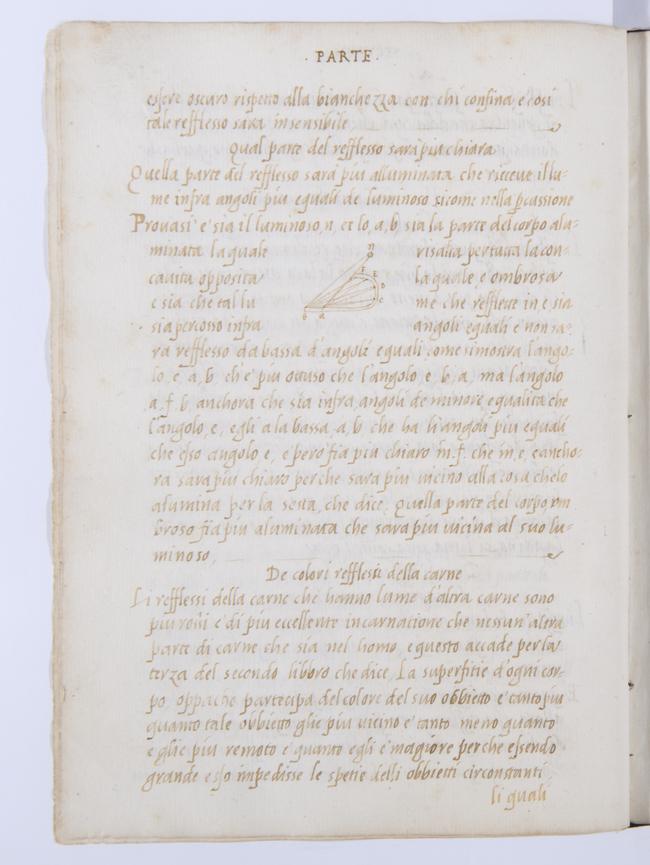 · PARTE ·
essere oscuro rispetto alla bianchezza con chi confina, e cosi
tale refflesso sara insensibile
Qual parte del refflesso sara piu chiara
Quella parte del refflesso sará piú alluminata che riceve il lu-
me infra angoli piu eguali de luminoso sicome nella pcussione
Provasi e' sia il luminoso, n, et lo, a, b, sia la parte del corpo alu-
minata la quale risalta per tutta la con-
cavita opposita la quale e' ombrosa
e sia che tal lu me che refflette in e sia
sia percosso infra angoli eguali e non sa-
ra refflesso da bassa d'angoli eguali come simostra l'ango-
lo, e, a, b, ch'e piu ottuso che l'angolo, e, b, a, ma l'angolo
a, f, b, anchora che sia infra angoli de minore equalita che
l'angolo, e, egli a la bassa, a, b, che ha li angoli piu equali
che esso angolo e, e pero fia piu chiaro in. f. che in, e, e ancho-
ra sara piu chiaro perche sara piu vicino alla cosa chelo
alumina per la sesta, che dice, Quella parte del corpo om
broso fia piu aluminata che sara piu vicina al suo lu-
minoso,
De colori refflessi della carne
Li refflessi della carne che hanno lume d'altra carne sono
piu rossi e di piu eccellente incarnacione che nessun'altra
parte di carne che sia nel homo, e questo accade per la
terza del secondo libbro che dice, La superfitie d'ogni cor-
po oppacho partecipa del colore del suo obbietto e' tanto piu
quanto tale obbietto glie piu vicino e' tanto meno quanto
e glie piu remoto e' quanto egli e' magiore perche essendo
grande esso impedisse le spetie delli obbietti circonstanti
li quali